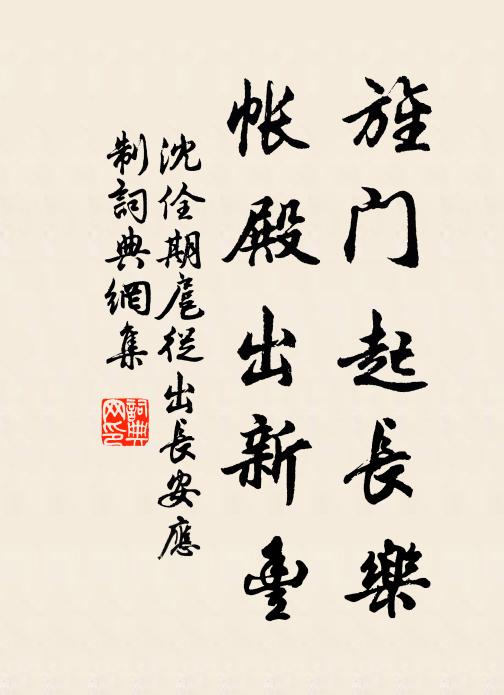 旌门起長樂
帳殿出新豊
沈佺期扈從出長安應
制詞典網集
詞典
网印